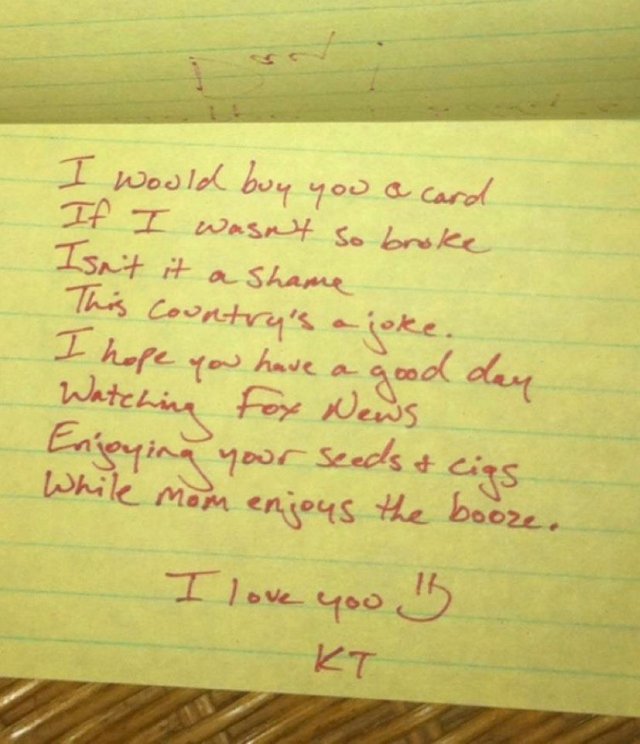 I would buy you a card
If I wasn't so broke
Isn't it a shame
This country's a joke.
I hope you have a good day
Watching Fox News
Enjoying your seeds & cigs
While mom enjoys the booze.
I love you =)
KT